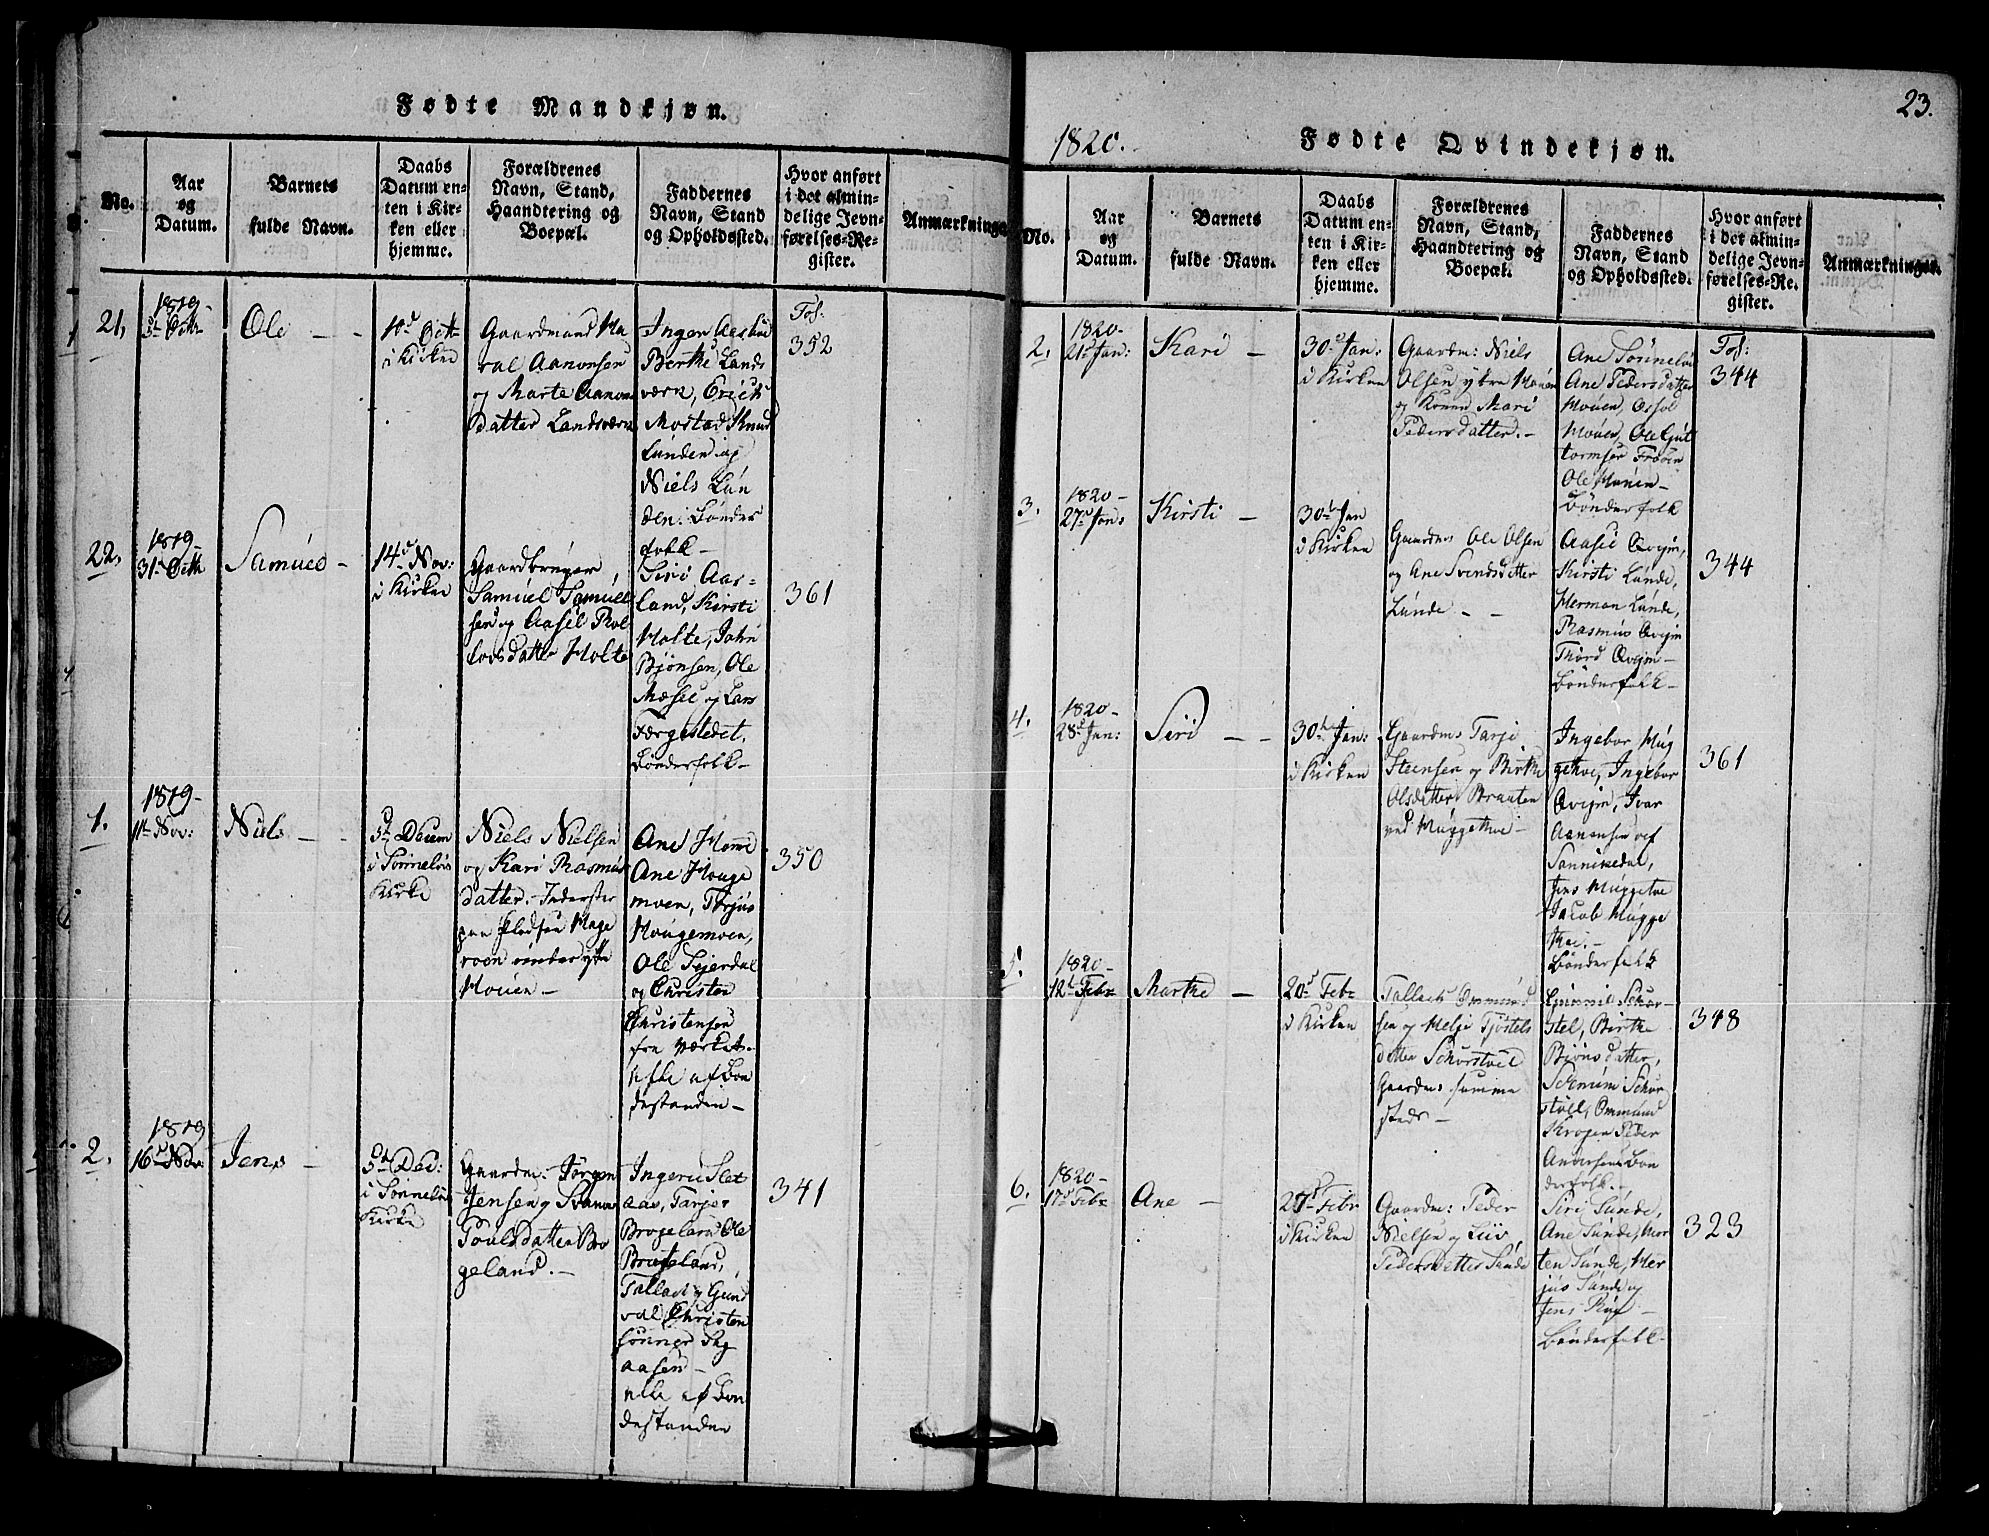 Fødte Mandkjøn.
No.
Aar
og
Datum.
Barnets
fulde Navn.
Daabs
Datum en-
ten i Kir-
ken eller
hjemme.
Forældrenes
Navn, Stand,
Haandtering og
Boepæl.
Faddernes
Navn, Stand
og Opholdssted.
Hvor anført
i det almin-
delige Jevn-
førelses-Re-
gister.
Anmærkninger.
21,
1819-
Octb
Ole
Octb
i Kirken
Gaardmand Ha
Aanonsen
og Marte Aanons
datter Landsværn
Berthe Lands
værn, Erick
Mostad Knud
Niels Lun
den: Bønder
folk-
Fol:
352
22,
1819-
31 Octb
Samuel -
14d Nov:
i Kirken
Gaardbruger
Samuel Samuel
sen og Aasil Rol
datter Holte
Siri Aas-
land, Kirsti
Holte, John
Bjønsen, Ole
Mæsel og Lars
Færgestedet,
Bønderfolk-
361
1.
1819-
11te Nov:
Niels
5te Decem
i Sønneløs
Kirke
Niels Nielsen
og Kari Rasmus
datter - Inderster
under ytre
Houen -
Ane Homme
Ane Houge
moen, Tørjus
Hougemoen,
Ole
og Christen
Christensen
fra Værket.
alle af Bon
destanden -
350
2.
1819
16d Nov
Jens -
5te Dec:
i Sønneløs
Kirke
Gaardm: Jørgen
Jensen og
Poulsdatter Bro
geland. -
Ingeri Slet
aas, Tarjer
Brogeland Ole
Brogeland,
Tallak og Gun
val Christen
sønner
aasen -
alle af Bon
destanden
341
23.
1820.
Fødte Qvindekjøn.
No.
Aar
og
Datum.
Barnets
fulde Navn.
Daabs
Datum en-
ten i Kir-
ken eller
hjemme.
Forældrenes
Navn, Stand,
Haandtering og
Boepæl.
Faddernes
Navn, Stand
og Opholdssted.
Hvor anført
i det almin-
delige Jevn-
førelses-Re-
gister.
Anmærkninger.
2.
1820-
21d Jan:
Kari -
30d Jan:
i Kirken
Gaardm: Niels
Olsen ytre Houen
og Konen Mari
Pedersdatter. -
Ane Sønneløs
Ane Pedersdatter
Houen, Aslol
Houen, Ole Gut
tormsen Frøen
Ole Houen -
Bønderfolk
Fol:
344
3.
1820-
27d Jan:
Kirsti -
30d Jan
i Kirken
Gaardm: Ole Olsen
og Ane Svendsdatter
Lunde - -
Aasil Qvejm,
Kirsti Lunde,
Herman Lunde,
Rasmus Qvejm
Thord Qvejm -
Bønderfolk -
344
4.
1820-
28d Jan:
Siri - -
30d Jan:
i Kirken
Gaardm: Tarje
Steensen og Birthe
Olsdatter Braaten
ved Muggethve -
Ingebor Mug
gethve, Ingebor
Qvejm, Ivar
Aanonsen af
Sannikedal,
Jens Muggetve
Jacob Mugge
Bønderfolk
361
5.
1820-
12d Febr
Marthe -
20d Febr
i Kirken
Tallack Ommund
sen og Helje Tjøstels
datter
Gaardm: samme
steds -
Gunnil
Birthe
Bjønsdatter,
Ommund
Krogen Peder
Andersen: Bon
derfolk. -
348
6.
1820-
17d Febr
Ane -
27d Febr
i Kirken
Gaardm: Peder
Nielsen og Liv
Pedersdatter Sunde
Siri Sunde,
Ane Sunde, Mor
ten Sunde, Ter
jus Sunde og
Jens
Bønderfolk -
323